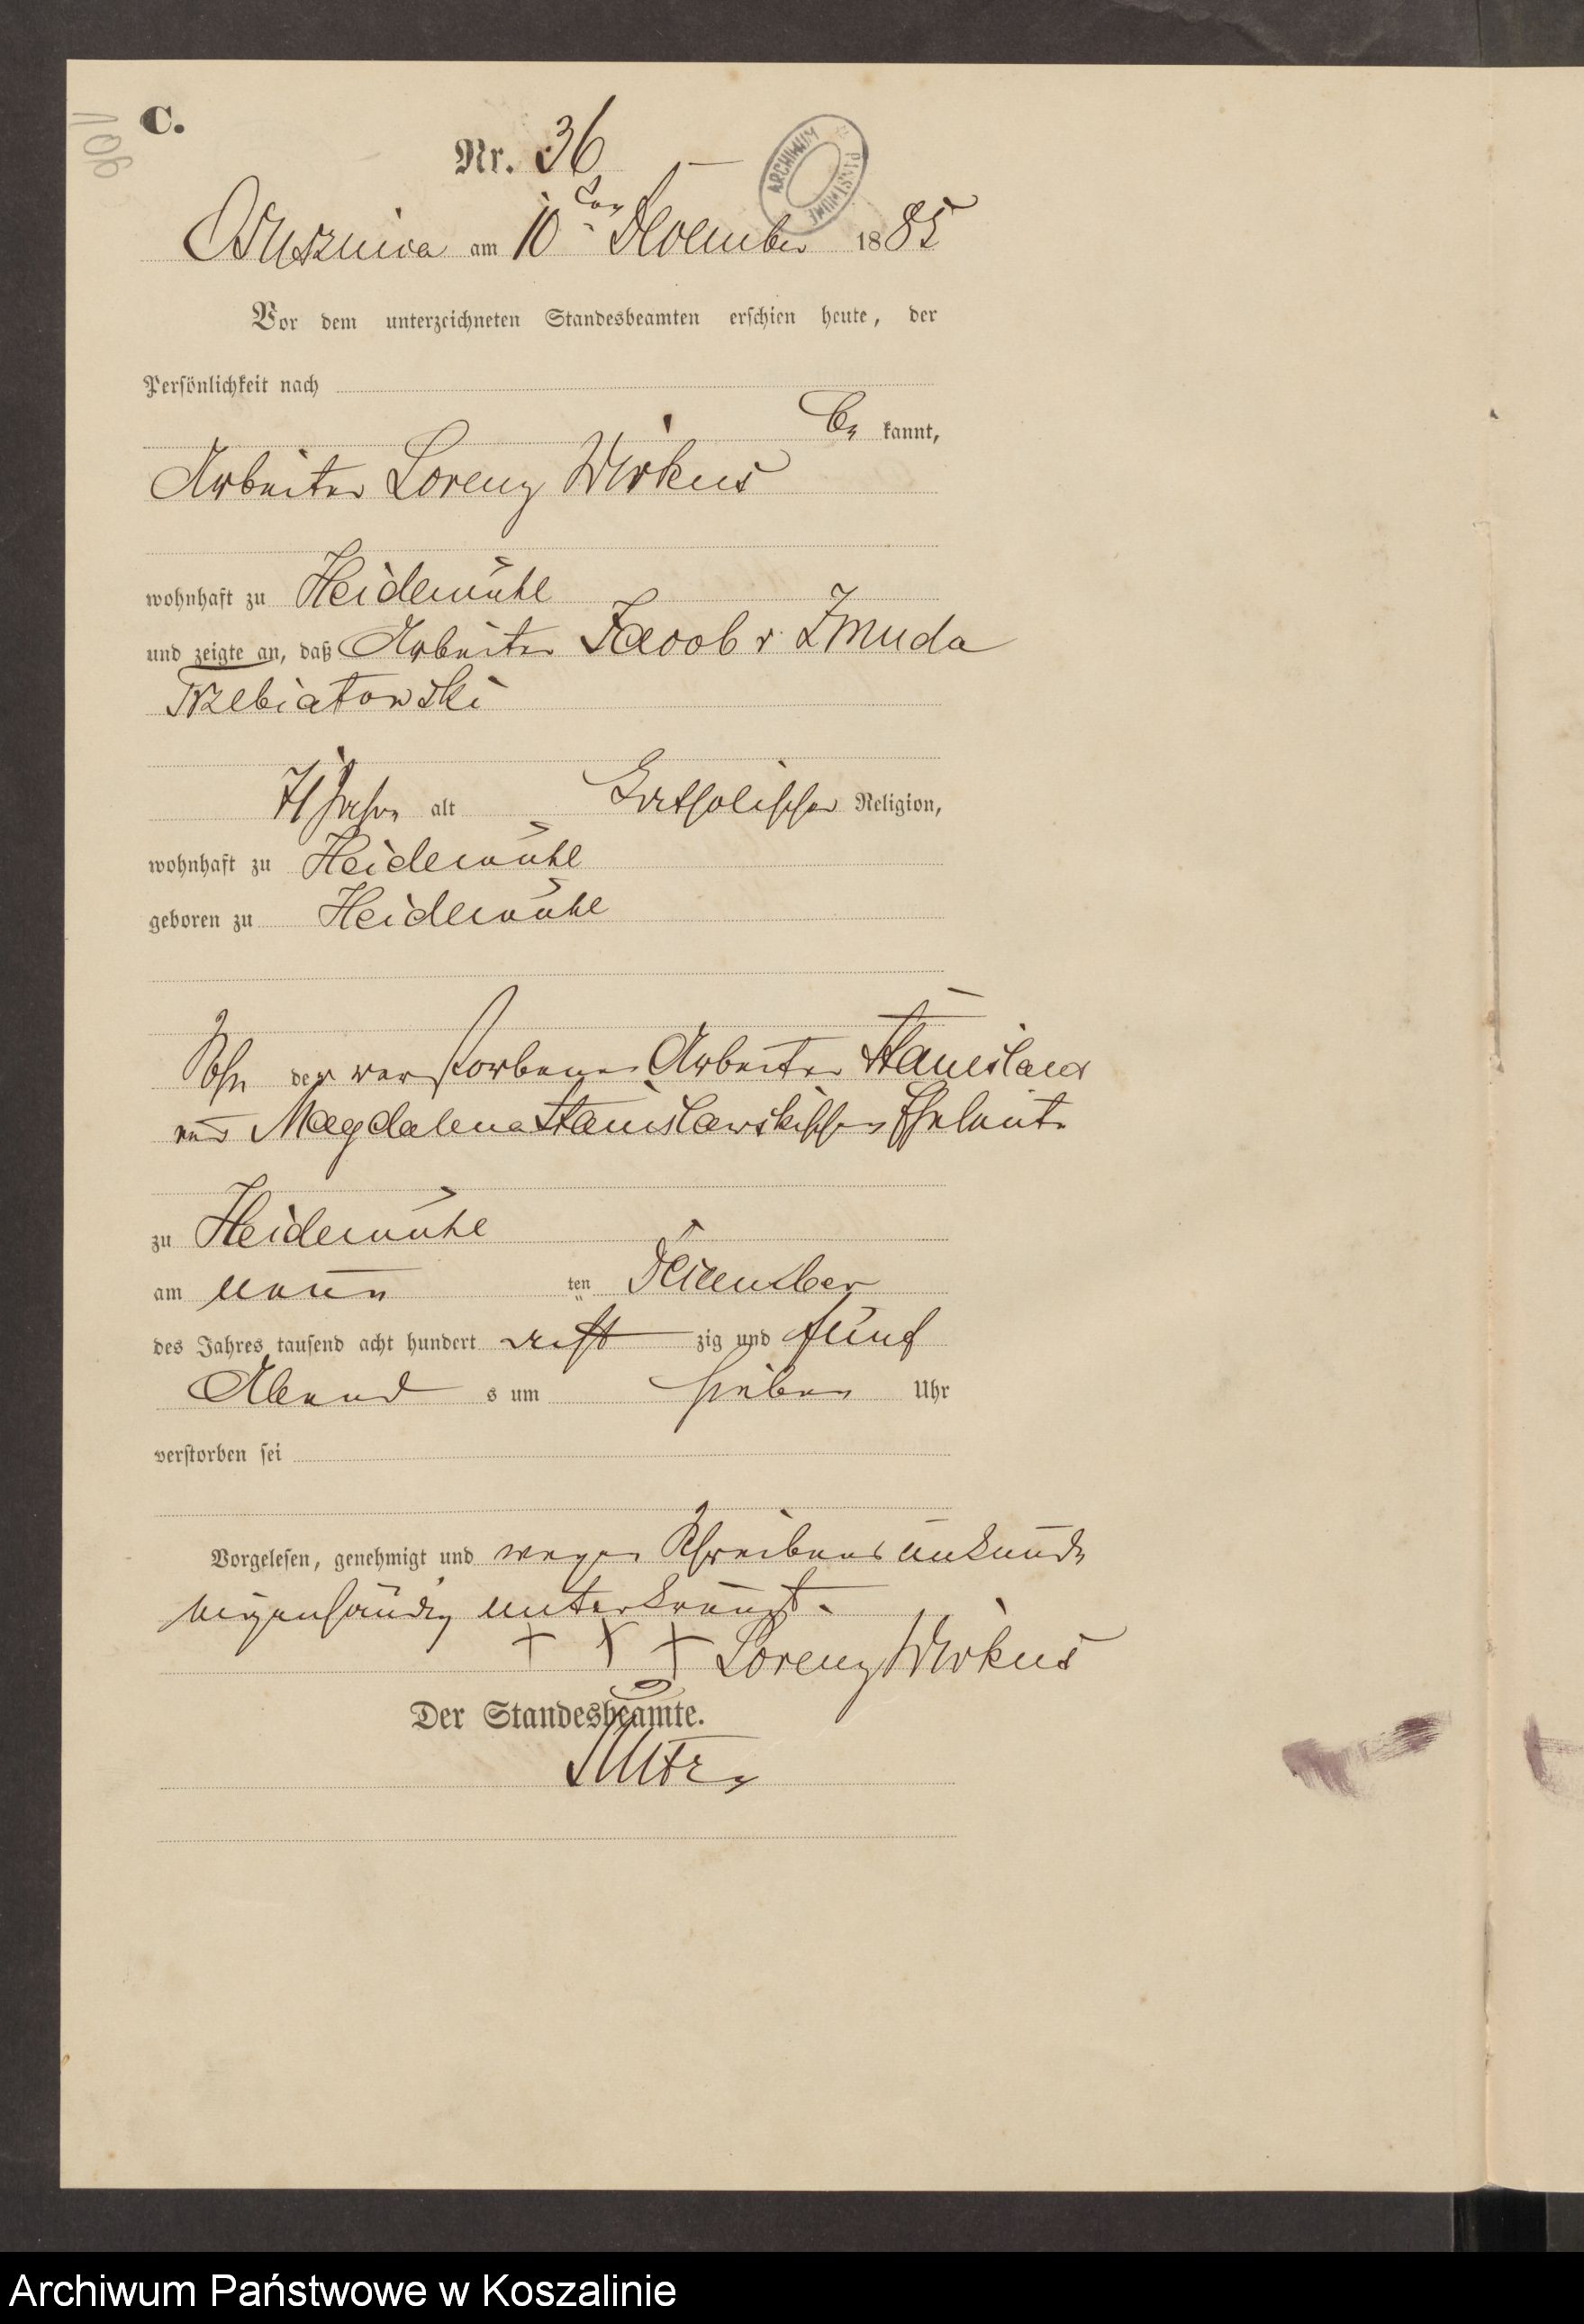 C.
106
Nr. 36
ARCHIWUM PAŃSTWOWE
am 10ten December 1885
Vor dem unterzeichneten Standesbeamten erschien heute, der
Persönlichkeit nach
be kannt,
Arbeiter Lorenz Wirkus
wohnhaft zu Heidemühl
und zeigte an, daß Arbeiter Jacob v. Zmuda
Trzebiatowski
71 Jahre alt Katholischer Religion,
wohnhaft zu Heidemühl
geboren zu Heidemühl
Sohn der verstorbenen Arbeiter
und Magdalena Stanislawskischen Eheleute
zu Heidemühl
am neun ten December
des Jahres tausend acht hundert acht zig und fünf
Abend s um sieben Uhr
verstorben sei
Vorgelesen, genehmigt und wegen Schreibensunkunde
eigenhändig unterkreuzt.
+ + + Lorenz Wirkus
Der Standesbeamte.
Archiwum Państwowe w Koszalinie